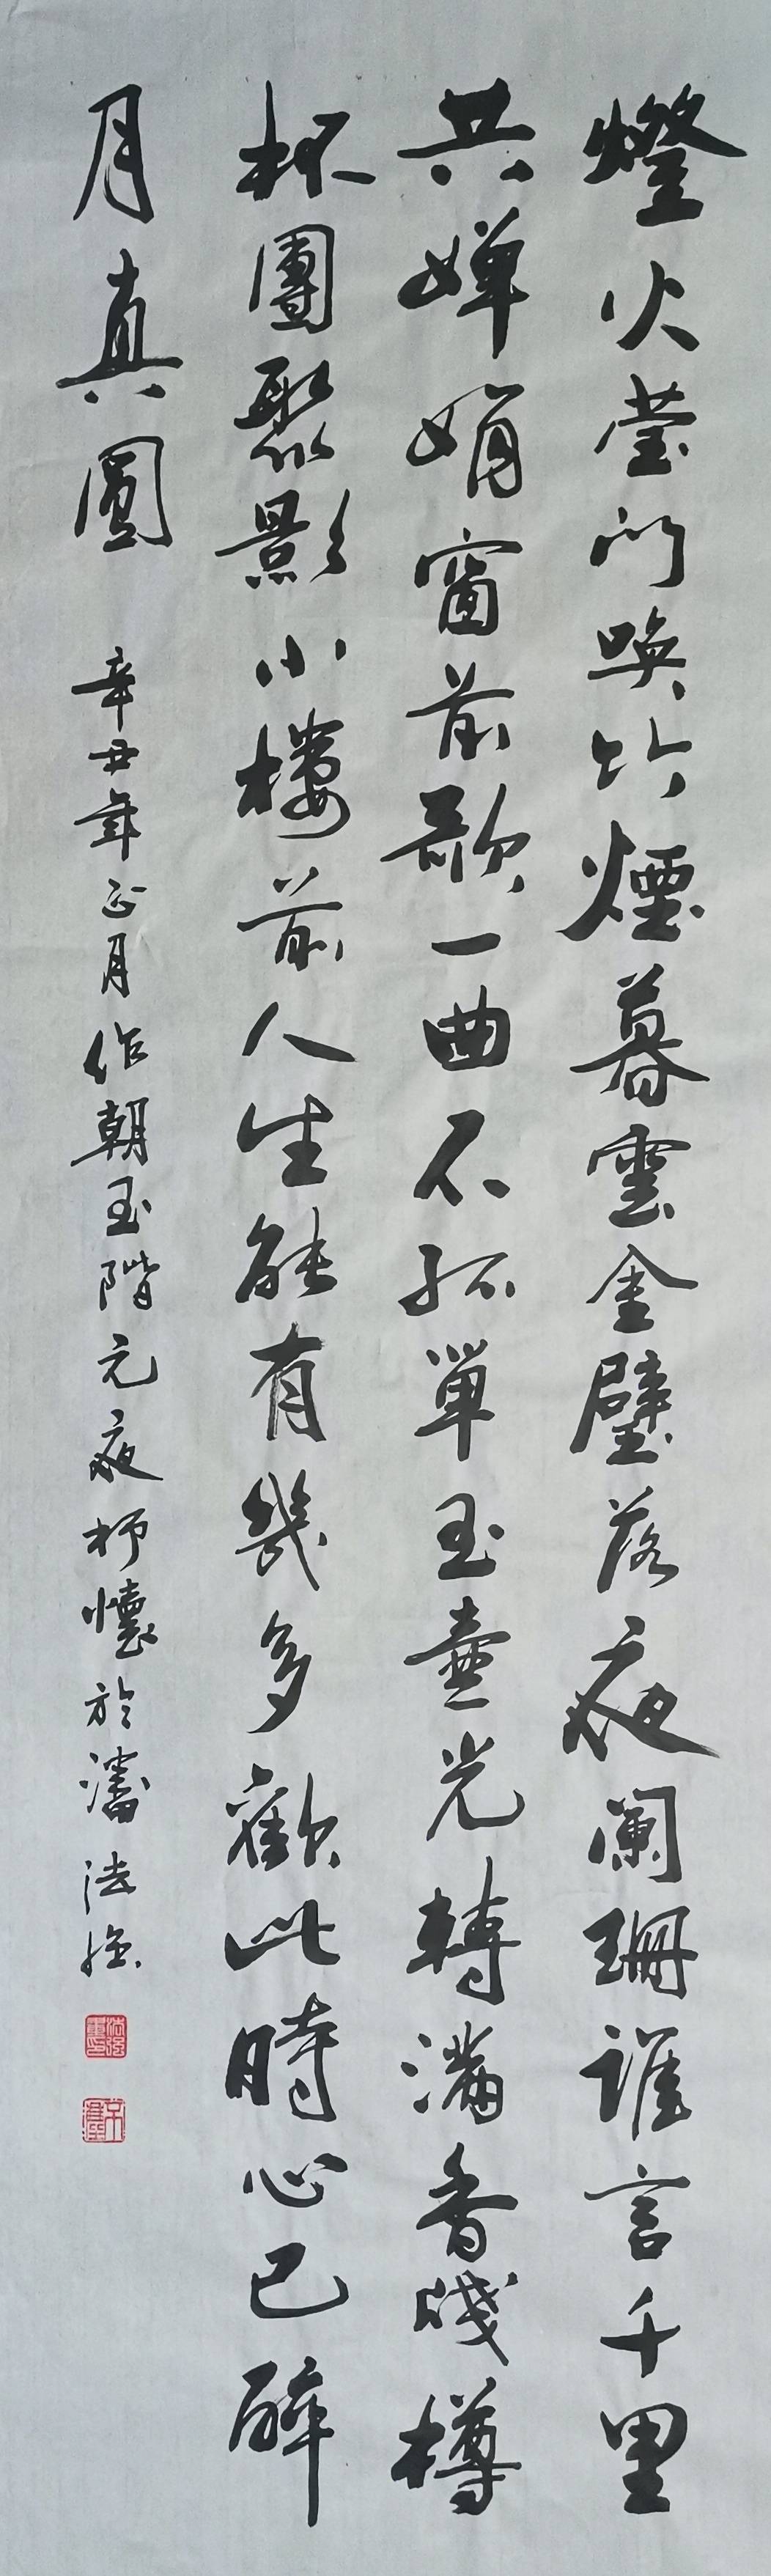 燈火莹门喚竹煙暮雲金璧落夜阑珊誰言千里
共婵娟窗前歌一曲不孤單玉壺光轉滿香牋樽
杯團聚影小樓前人生能有幾多歡此時心已醉
月真圓
辛丑年正月作朝玉階元夜抒懷於瀋法強